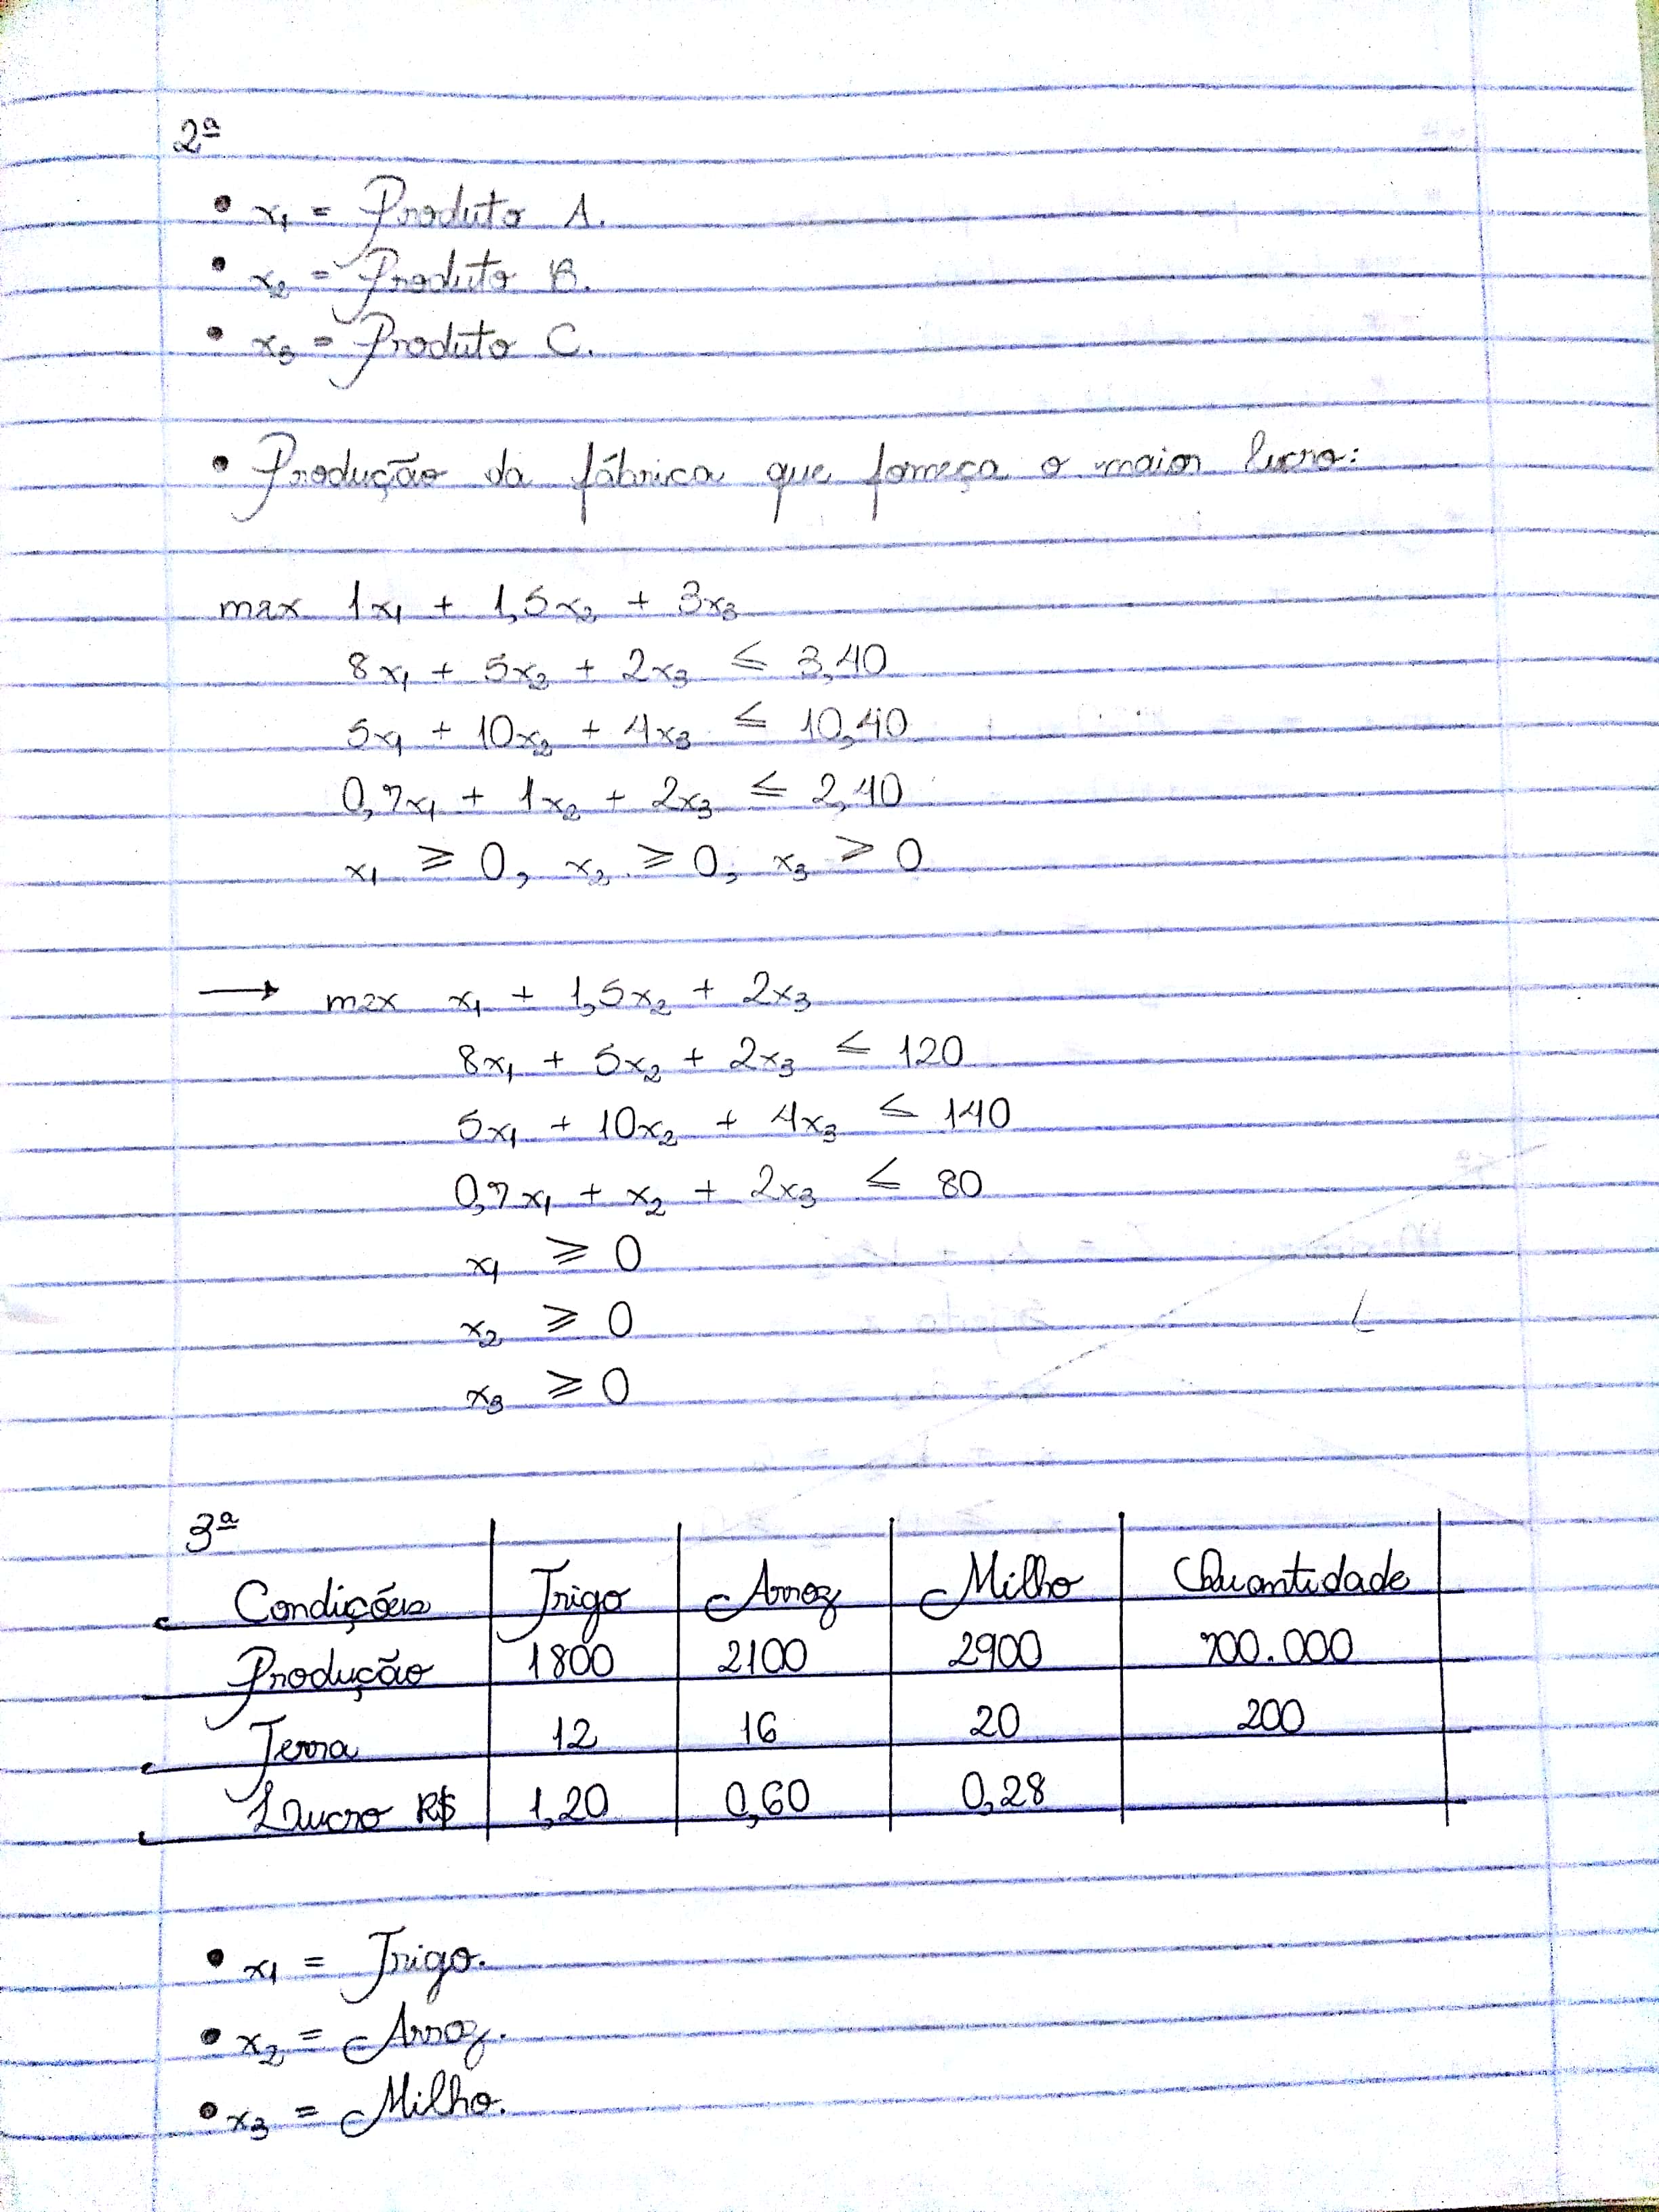 2ª
• x₁ = Produto A.
• x₂ = Produto B.
• x₃ = Produto C.
• Produção da fábrica que forneça o maior lucro:
max 1x₁ + 1,5x₂ + 3x₃
8x₁ + 5x₂ + 2x₃ ≤ 3,40
5x₁ + 10x₂ + 4x₃ ≤ 10,40
0,7x₁ + 1x₂ + 2x₃ ≤ 2,40
x₁ ≥ 0, x₂ ≥ 0, x₃ > 0
→ max x₁ + 1,5x₂ + 2x₃
8x₁ + 5x₂ + 2x₃ ≤ 120
5x₁ + 10x₂ + 4x₃ ≤ 140
0,7x₁ + x₂ + 2x₃ ≤ 80
x₁ ≥ 0
x₂ ≥ 0
x₃ ≥ 0
3ª
Condições Trigo Arroz Milho Quantidade
Produção 1800 2100 2900 700.000
Terra 12 16 20 200
Lucro R$ 1,20 0,60 0,28
• x₁ = Trigo.
• x₂ = Arroz.
• x₃ = Milho.